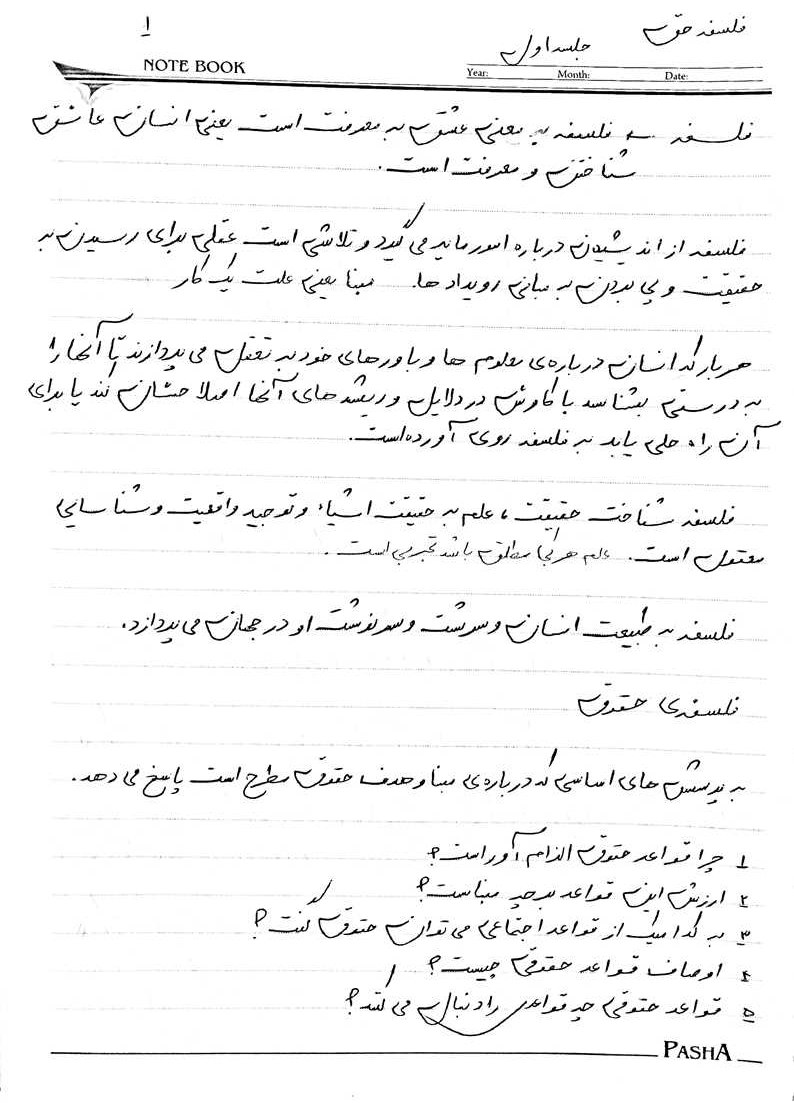 فلسفه حقوق
۱
جلسه اول
NOTE BOOK
Year: Month: Date:
فلسفه ← فلسفه به معنی عشق به معرفت است یعنی انسان عاشق
شناختن و معرفت است.
فلسفه از اندیشیدن درباره امور مایه می گیرد و تلاشی است عقلی برای رسیدن به
حقیقت و پی بردن به مبانی رویداد ها. مبنا یعنی علت یک کار
هر بار که انسان درباره‌ی معلوم ها و باورهای خود به تعقل می پردازند تا آنها را
به درستی بشناسد یا کاوش در دلایل و ریشه های آنها اصلاحشان کند یا برای
آن راه حلی یابد به فلسفه روی آورده‌است.
فلسفه شناخت حقیقت، علم به حقیقت اشیاء و توجیه واقعیت و شناسایی
معقول است. علم هر کجا مطلق باشد تجربی است.
فلسفه به طبیعت انسان و سرشت و سرنوشت او در جهان می پردازد.
فلسفه‌ی حقوق
به پرسش های اساسی که درباره‌ی مبنا و هدف حقوق مطرح است پاسخ می دهد.
۱ چرا قواعد حقوق الزام آور است؟
۲ ارزش این قواعد بر چه مبناست؟
۳ به کدامیک از قواعد اجتماعی می توان حقوق گفت؟
۴ اوصاف قواعد حقوقی چیست؟
۵ قواعد حقوقی چه قواعدی را دنبال می کند؟
PASHA